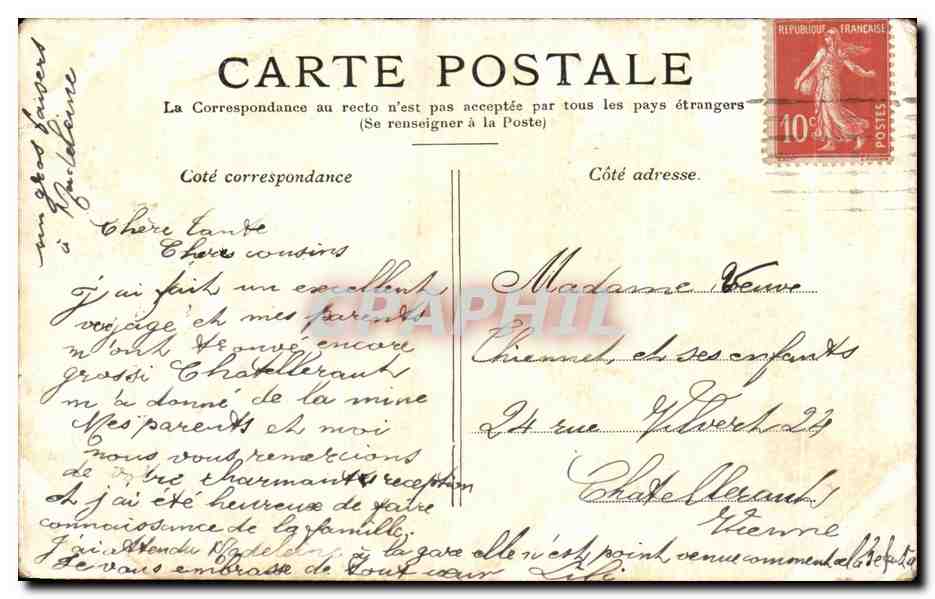 CARTE POSTALE
La Correspondance au recto n'est pas acceptée par tous les pays étrangers
(Se renseigner à la Poste)
REPUBLIQUE FRANÇAISE
10c
POSTES
Coté correspondance
Côté adresse.
un gros baisers
à Madeleine
Chère tante
Chers cousins
j'ai fait un excellent
voyage et mes parents
m'ont trouvé encore
grossi Chatellerault
m'a donné de la mine
Mes parents et moi
nous vous remercions
de votre charmante reception
et j'ai été heureux de faire
connaissance de la famille.
J'ai atendu Madeleine à la gare elle n'est point venue comment
Je vous embrasse de tout cœur Lili
Madame Veuve
Thiennet et ses enfants
24 rue Vilvert 24
Chatellerault
Vienne
CPAPHIL